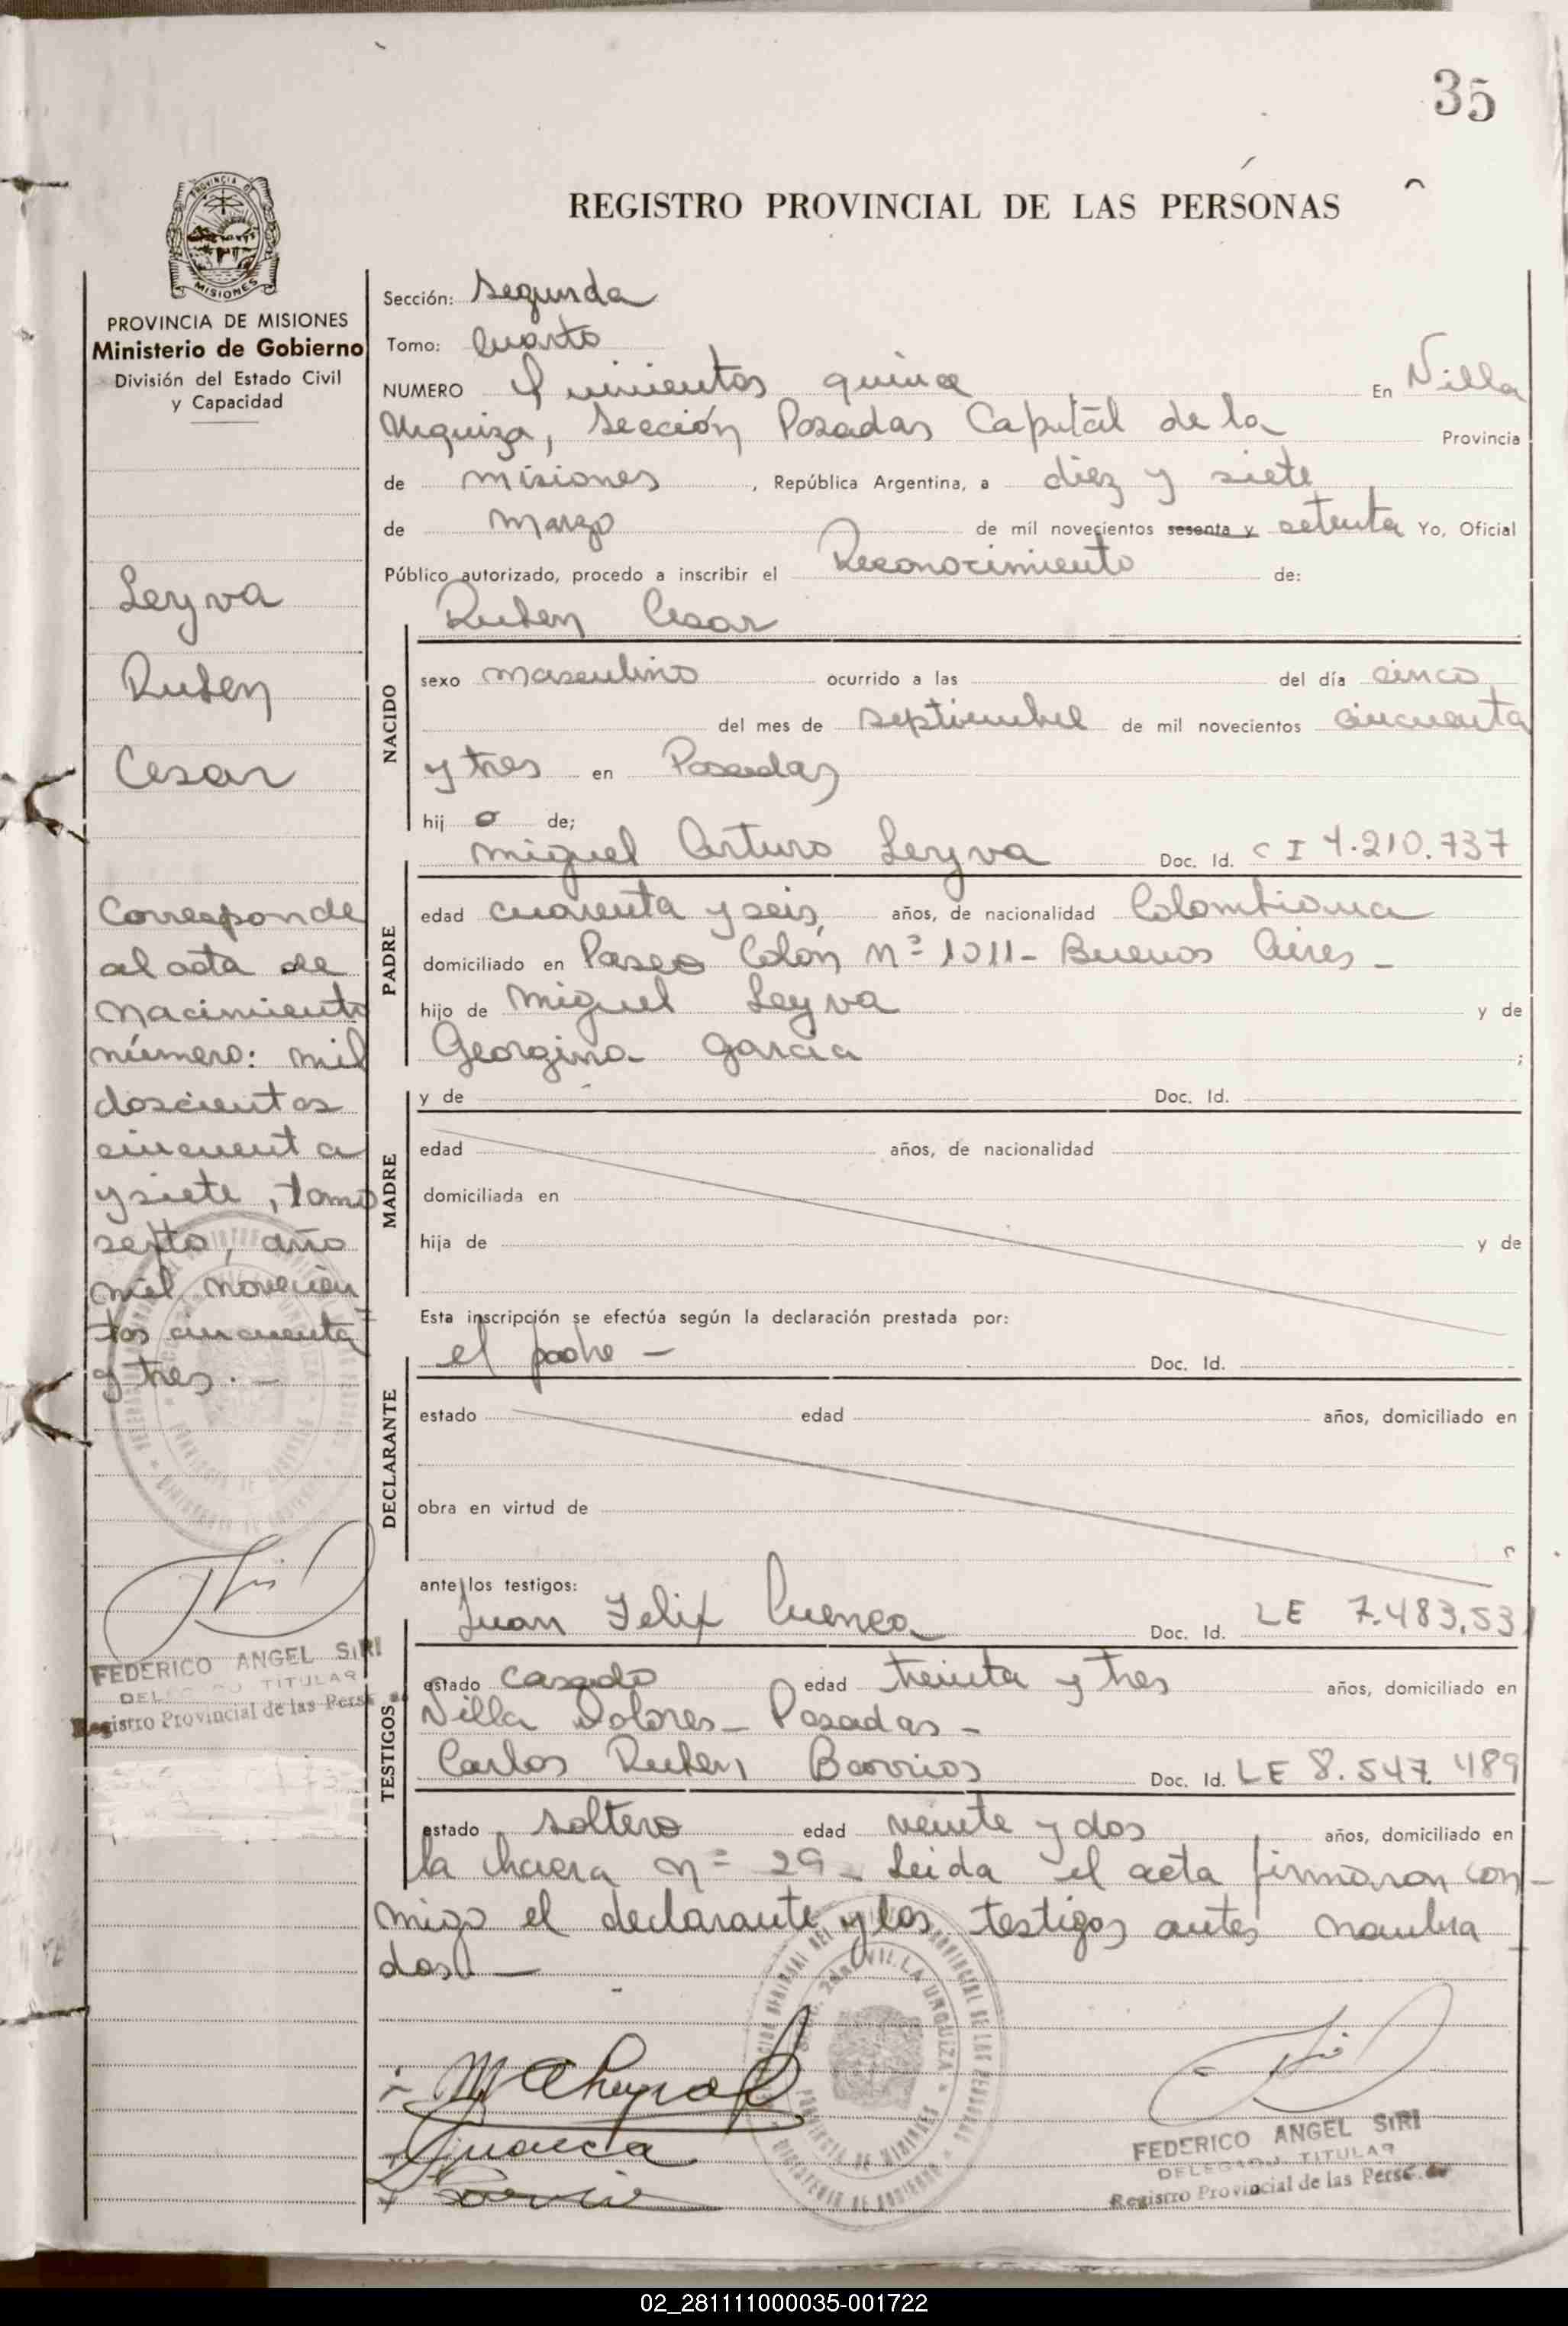 35
REGISTRO PROVINCIAL DE LAS PERSONAS
PROVINCIA DE MISIONES
MISIONES
PROVINCIA DE MISIONES
Ministerio de Gobierno
División del Estado Civil
y Capacidad
Leyva
Ruben
Cesar
Corresponde
al acta de
nacimiento
número: mil
doscientos
cincuenta
y siete, tomo
sexto, año
mil novecien=
tos cincuenta
y tres. -
FEDERICO ANGEL SIRI
DELEGADO TITULAR
Registro Provincial de las Pers
Sección: Segunda
Tomo: Cuarto
NUMERO Quinientos quince En Villa
Urquiza, Sección Posadas Capital de la Provincia
de misiones, República Argentina, a diez y siete
de Marzo de mil novecientos sesenta y setenta Yo, Oficial
Público autorizado, procedo a inscribir el Reconocimiento de:
Ruben Cesar
NACIDO
sexo masculino ocurrido a las del día cinco
del mes de septiembre de mil novecientos cincuenta
y tres en Posadas
hij o de;
miguel Arturo Leyva Doc. Id. C I 4.210.737
PADRE
edad cuarenta y seis, años, de nacionalidad Colombiana
domiciliado en Paseo Colón Nº 1011- Buenos Aires -
hijo de Miguel Leyva y de
Georgina Garcia ;
MADRE
y de Doc. Id.
edad años, de nacionalidad
domiciliada en
hija de y de
Esta inscripción se efectúa según la declaración prestada por:
el padre - Doc. Id.
DECLARANTE
estado edad años, domiciliado en
obra en virtud de
ante los testigos:
Juan Felix Cuenca Doc. Id. LE 7.483.531
TESTIGOS
estado casado edad treinta y tres años, domiciliado en
Villa Dolores - Posadas -
Carlos Ruben Barrios Doc. Id. LE 8.547.489
estado soltero edad veinte y dos años, domiciliado en
la chacra nº 29 - Leida el acta firmaron con-
migo el declarante y los testigos antes nombra-
dos. -
SECC. 2da. VILLA URQUIZA
PROVINCIA DE MISIONES
MINISTERIO DE GOBIERNO
FEDERICO ANGEL SIRI
DELEGADO TITULAR
Registro Provincial de las Pers
02_281111000035-001722